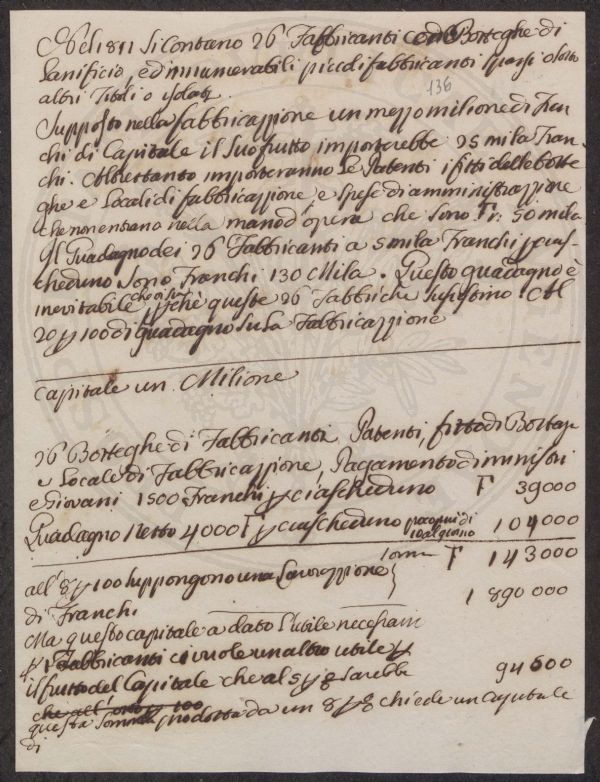 Nel 1811 si contano 26 Fabbricanti con Botteghe di
Lanificio, ed innumerabili piccoli fabbricanti sparsi o sotto
altri Titoli o
136
Supposto nella fabbricazzione un mezzo milione di Fran
chi di Capitale il suo frutto importerebbe 25 mila Fran
chi. Altrettanto importeranno le Patenti i fitti delle botte
ghe e Locali di fabbricazzione, e spese di amministrazzione
che non entrano nella mano d'opera che sono Fr. 50 mila
Il Guadagno dei 26 Fabbricanti a 5 mila Franchi p cias
cheduno sono Franchi 130 Mila. Questo guadagno è
inevitabile perchè queste 26 Fabbriche sussistino. Al
20 p 100 di guadagno su la Fabbricazzione
Capitale un Milione
26 Botteghe di Fabbricanti, Patenti, fitto di Botteghe
e Locale di Fabbricazzione, Pagamento di ministri
e Giovani 1500 Franchi p ciascheduno F 39000
Guadagno Netto 4000 F p ciascheduno 104000
10 al giorno
F 143000
all' 8 p 100 suppongono una Lavorazzione
di Franchi 1 890 000
Ma questo capitale a dato l'utile necessario
p i Fabbricanti ci vuole un altro utile p
il frutto del Capitale che al 5 p % sarebbe 94500
che all' p 100
questa somma prodotta da un 8 p % chiede un capitale
di